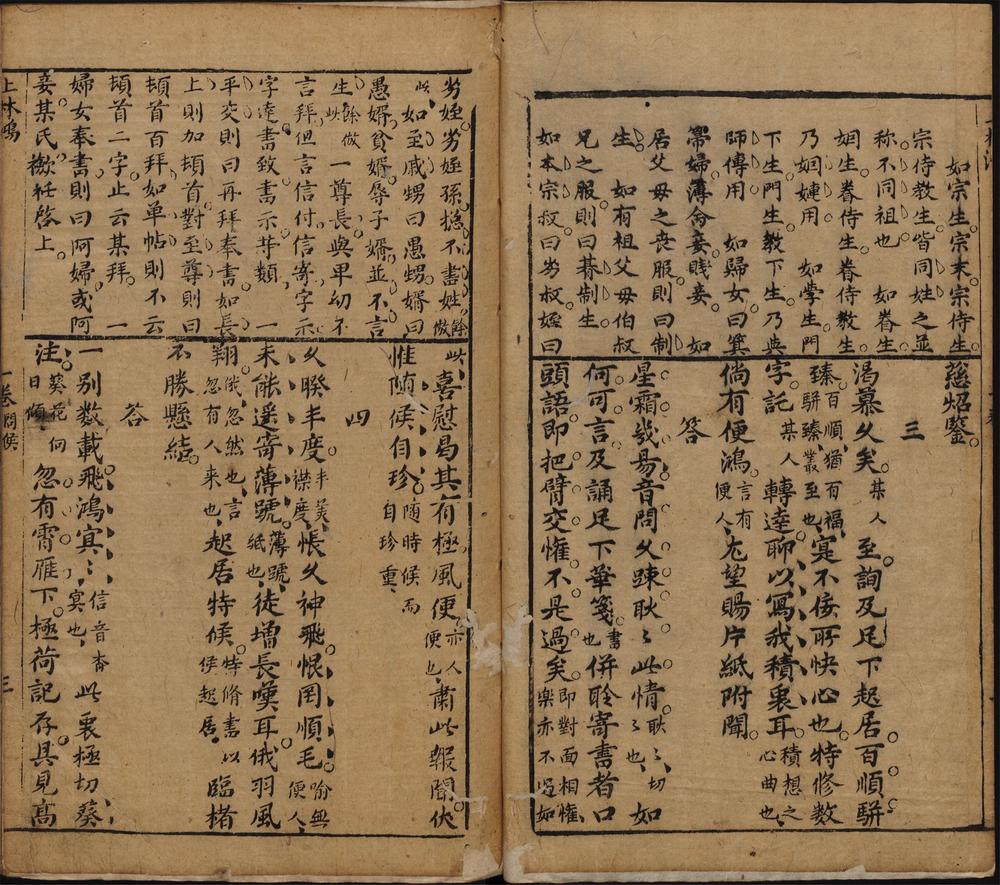 如宗生宗末宗侍生
宗侍教生皆同姓之並
称不同祖也　如眷生
姻生眷侍生眷侍教生
乃姻嫌用　如學生門
下生門生教下生乃與
師傅用　如歸女曰箕
帚婦薄命妾賤妾　如
居父母之丧服則曰制
生　如有祖父母伯叔
兄之服則曰朞制生
如本宗叔曰劣叔姪曰
慈炤鑒
三
渴慕久矣某人至詢及足下起居百順駢
臻百順猶百福駢臻叢至也寔不佞所快心也特修数
字託某人轉達聊以寫我積衷耳積想之心曲也
倘有便鴻言有便人尤望賜片紙附聞
答
星霜幾易音問久踈耿〻此情耿〻切〻也如
何可言及誦足下華箋書也併聆寄書者口
頭語即把臂交懽不是過矣即對面相懽樂亦不過如
劣姪劣姪孫摠不書姓餘倣
此　如至戚甥曰愚甥婿曰
愚婿貧婿辱子婿並不言
生餘倣此　一尊長與卑幼不
言拜但言信付信寄字示
字達書致書示等類　一
平交則曰再拜奉書如長
上則加頓首對至尊則曰
頓首百拜如单帖則不云
頓首二字止云某拜　一
婦女奉書則曰阿婦或阿
妾某氏襝衽啓上
此喜慰曷其有極風便亦人便也肅此報聞伏
惟隨侯自珍隨時候而自珍重
四
久睽丰度丰美襟度悵久神飛恨罔順毛喻無便人
未能遥寄薄號薄號紙也徒增長嘆耳俄羽風
翔俄忽然也言忽有人来也起居特候特脩書以候起居臨楮
不勝懸結
答
一别数載飛鴻寘〻信音杳寘也此衷極切葵
注葵花何日傾忽有霄雁下極荷記存具見高
上林鴻
一卷 問候
三